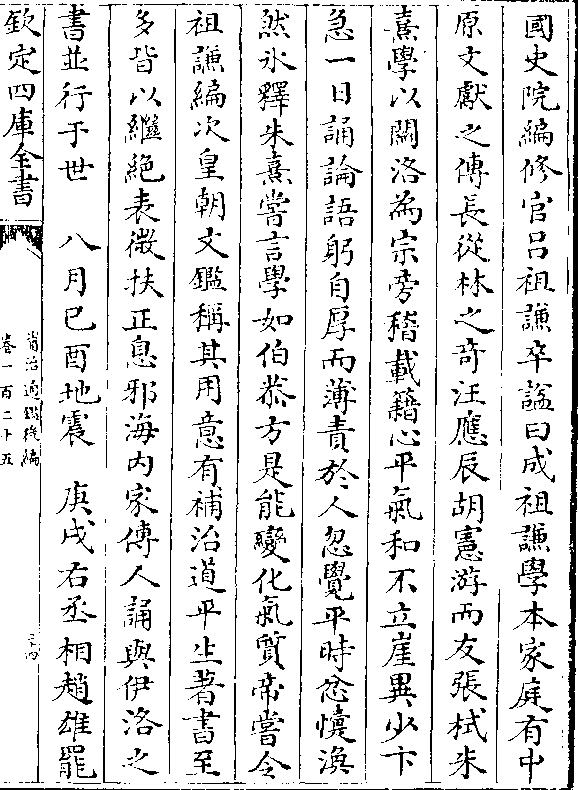 國史院編修官吕祖謙卒諡曰成祖謙學本家庭有中
原文獻之傳長從林之奇汪應辰胡憲游而友張栻朱
熹學以關洛為宗旁稽載籍心平氣和不立崖異少卞
急一日誦論語躬自厚而薄責於人忽覺平時忿懥渙
然氷釋朱熹嘗言學如伯恭方是能變化氣質帝嘗令
祖謙編次皇朝文鑑稱其用意有補治道平生著書至
多皆以繼絶表微扶正息邪海内家傳人誦與伊洛之
書並行于世　八月己酉地震　庚戌右丞相趙雄罷
欽定四庫全書
資治通鑑後編
卷一百二十五